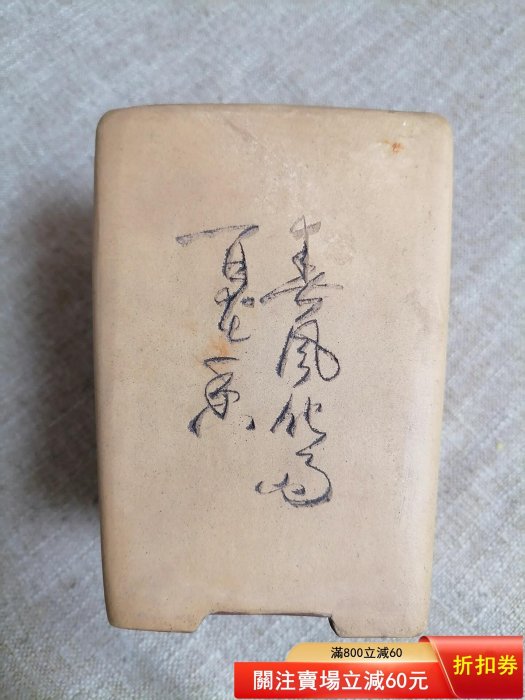 春风化雨
滿800立減60
關注賣場立減60元
折扣券